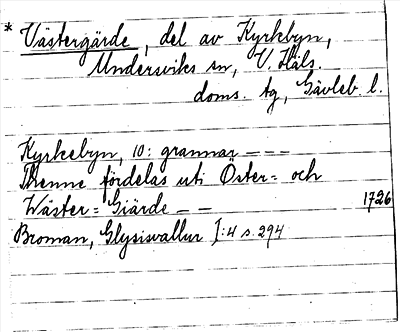 * Västergärde, del av Kyrkbyn,
Undersviks sn, V. Häls.
doms. tg, Gävleb. l.
Kyrkebyn, 10: grannar ---
Thenne fördelas uti Öster= och
Wäster= Giärde -- 1726
Broman, Glysisvallur I:4 s. 294